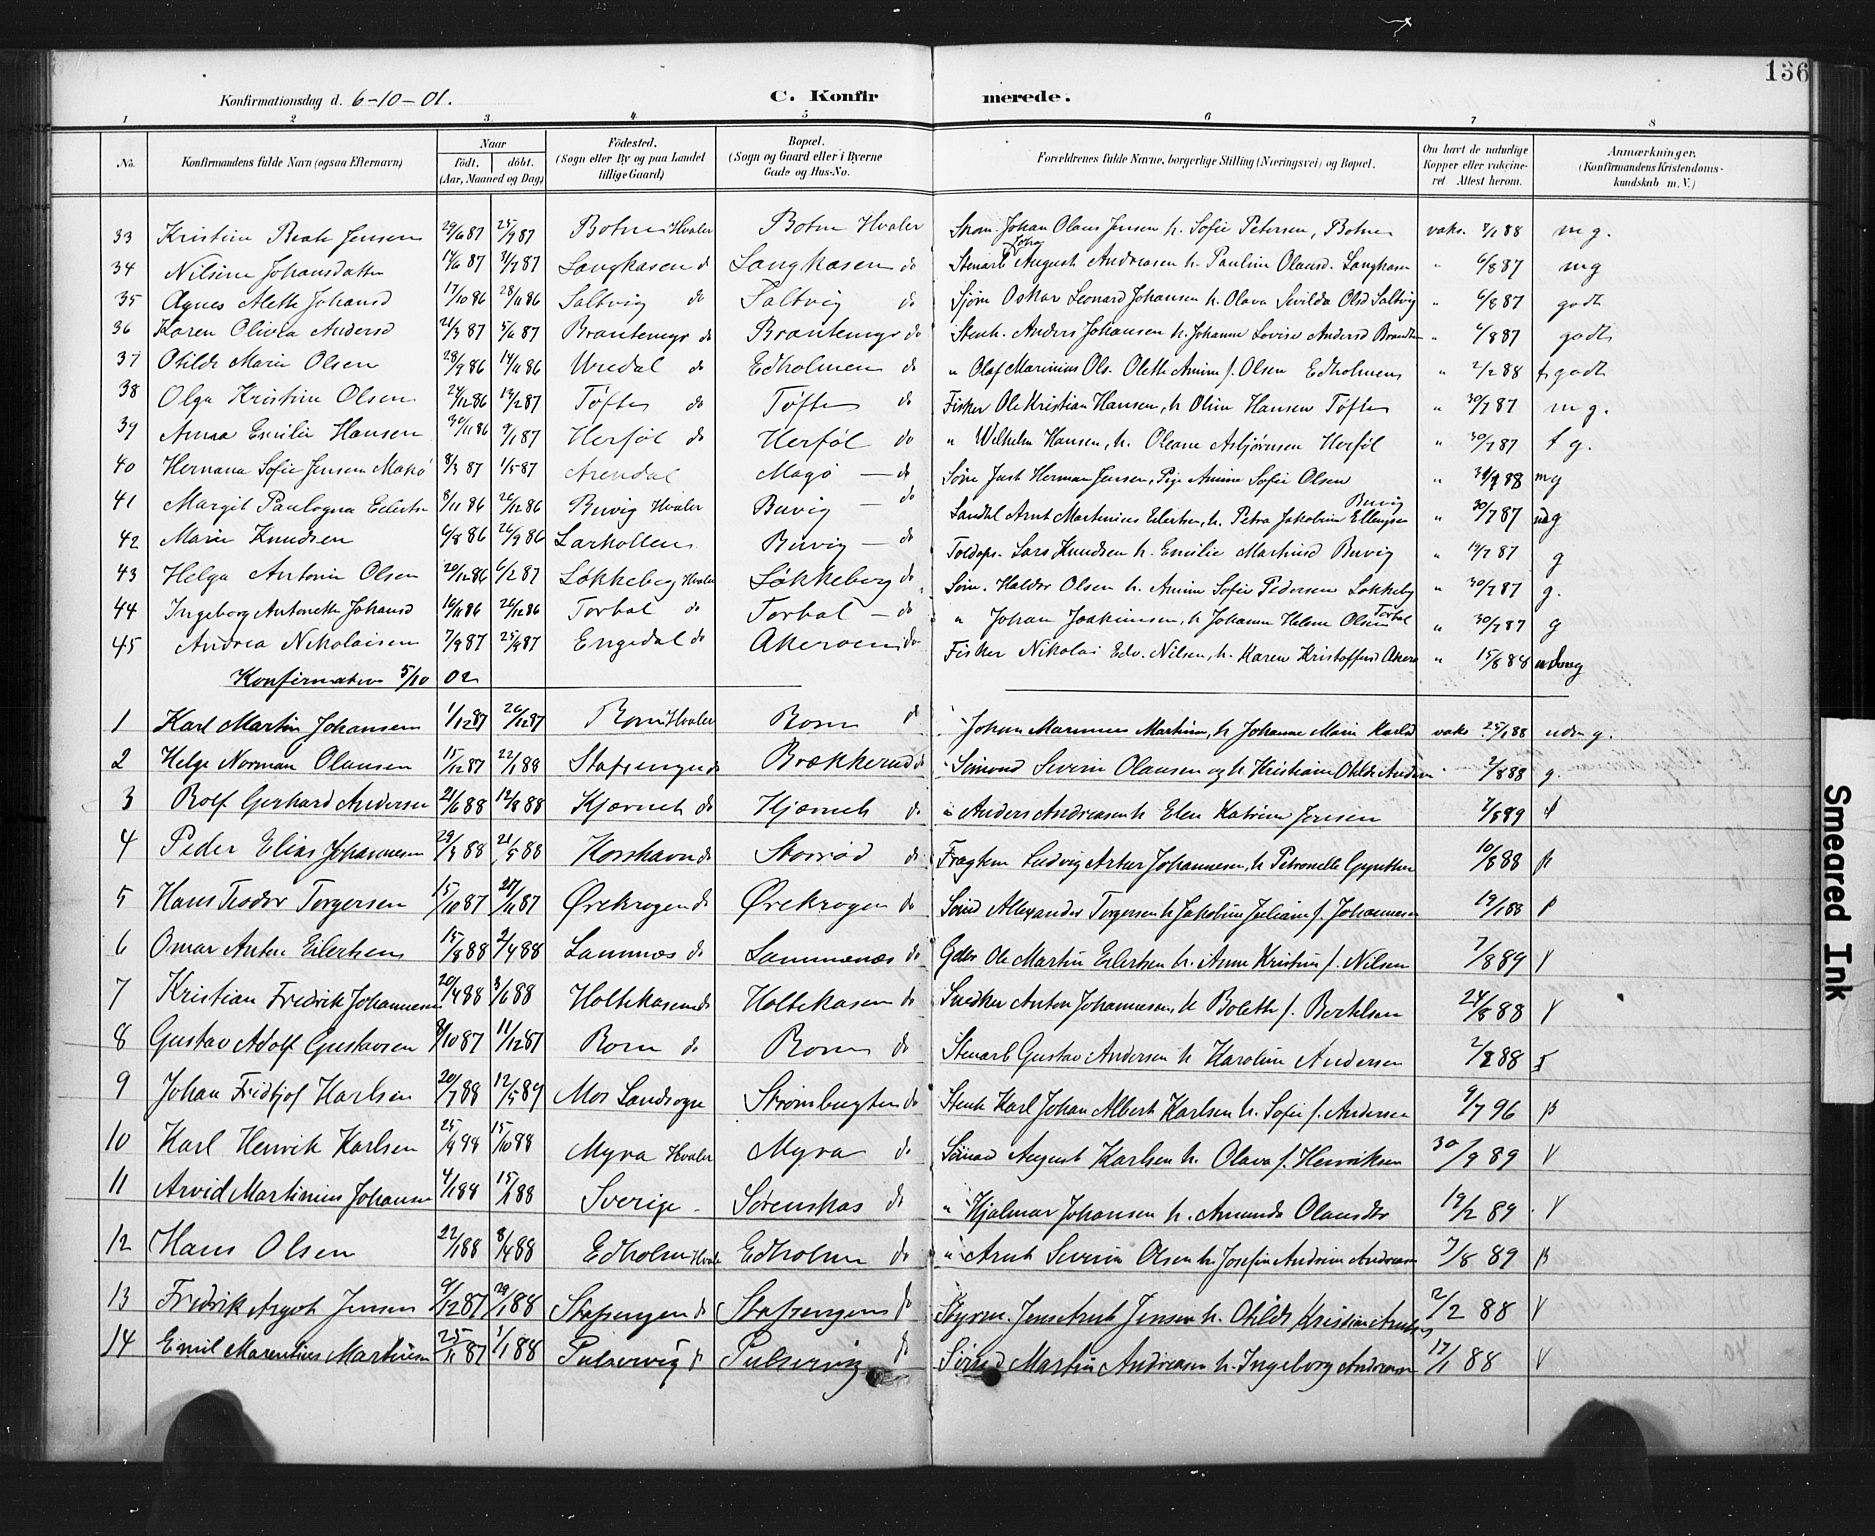 136
Konfirmationsdag d. 6-10-01. C. Konfirmerede.
1 2 3 4 5 6 7 8
No. Konfirmandens fulde Navn (ogsaa Efternavn) Naar Født. døbt. (Aar, Maaned og Dag) Fødested. (Sogn eller By og paa Landet tillige Gaard) Bopæl. (Sogn og Gaard eller i Byerne Gade og Hus-No. Forældrenes fulde Navne, borgerlige Stilling (Næringsvei) og Bopæl. Om havt de naturlige Kopper eller vakcineret Attest herom. Anmærkninger. (Konfirmandens Kristendomskundskab m. V.)
33 Kristine Beate Jensen 29/6 87 25/9 87 Botne Hvaler Botne Hvaler Johan Olaus Jensen h. Sofie Petersen, Botne vaks. 88 m g.
34 Nilsine Johansdatter 87 87 Langkasen do Langkasen do Stenarb August Andreasen h. Pauline Olausd. Langkasen " 6/8 87 mg
35 Agnes Alette Johansd 17/10 86 28/11 86 Saltvig do Saltvig do Sjøm Oskar Leonard Johansen h. Olava Sevilda Olsd Saltvig " 6/8 87 godt
36 Karen Olivia Andersd 21/3 87 5/6 87 Brantemyr do Brantemyr do Stenh. Anders Johansen h. Johanne Lovise Andersd " 6/8 87 godt
37 Otilde Marie Olsen 28/9 86 14/11 86 Urdal do Edholmen do " Olaf Marinius Ols. Olette Amine f. Olsen Edholmen " 2/2 88 godt
38 Olga Kristine Olsen 24/12 86 13/2 87 Tøfte do Tøfte do Fisker Ole Kristian Hansen, h Oline Hansen Tøfte " 30/7 87 m g.
39 Anna Emilie Hansen 30/11 86 9/1 87 Herføl do Herføl do " Wilhelm Hansen, h. Oleane Asbjørnsen Herføl " 30/7 87 t g.
40 Hernana Sofie Jensen Makø 8/3 87 1/5 87 Arendal Magø — do Just Herman Jensen, Pige Amine Sofie Olsen " 88 mg
41 Margit Paulogna Eilertsen 8/11 86 26/12 86 Buvig Hvaler Buvig — do Arnt Martinius Eilertsen, h. Petra Jakobine Ellingsen Buvig " 30/7 87 g
42 Marie Knudsen 6/8 86 26/9 86 Larkollen Buvig — do Toldops. Lars Knudsen h. Emilie Martinsd Buvig " 19/7 87 g
43 Helga Antonie Olsen 20/12 86 6/2 87 Løkkeberg Hvaler Løkkeberg do Søm. Haldor Olsen h. Amine Sofie Pedersen Løkkeberg " 30/7 87 g.
44 Ingeborg Antonette Johansd 16/11 86 26/12 86 Torbal do Torbal — do " Johan Joakimsen, h Johanne Helene Olsen Torbal " 30/7 87 g
45 Andrea Nikolaisen 7/9 87 25/9 87 Engedal do Akerøen do Fisker Nikolai Edv. Nilsen, h. Karen Kristoffersd Akerø " 15/8 88
Konfirmation 5/10 02
1 Karl Martin Johansen 1/12 87 26/12 87 Rom Hvaler Rom do Johan Marinius Martins, h Johanne Marie Karlsd vaks. 25/1 88
2 Helge Norman Olausen 15/12 87 22/1 88 Stafsengen do Brækkerud do Sømand Severin Olausen og h Kristiane Otilde Andersen 2/8 88 g.
3 Rolf Gerhard Andersen 21/6 88 12/8 88 Kjærnet do Kjærnet do " Anders Andreasen h Elen Katrine Jensen 89
4 Peder Elias Johannesen 29/3 88 21/5 88 Korshavn do Storrød do Fragtem Ludvig Artur Johannesen, h Petronelle 10/8 88
5 Hans Teodor Torgersen 15/10 87 27/11 87 Ørekrogen do Ørekrogen do Sømd Allexander Torgersen h Jakobine Juliane f. Johannesen 19/1 88
6 Omar Anton Eilertsen 15/2 88 2/4 88 Lammæs do Lammenæs do Gdbr Ole Martin Eilertsen h. Anne Kristine f. Nilsen 7/8 89
7 Kristian Fredrik Johannesen 20/4 88 3/6 88 Holtekasen do Holtekasen do Snedker Anton Johannesen, h Bolette f. Bertelsen 24/8 88
8 Gustav Adolf Gustavsen 8/10 87 11/12 87 Rom do Rom do Stenarb Gustav Andersen h Karoline Andersen 88
9 Johan Fridtjof Karlsen 20/7 88 12/5 89 Mos Landsogn Strømbugten do Stenh Karl Johan Albert Karlsen h. Sofie f. Andersen 9/7 96
10 Karl Henrik Karlsen 88 15/10 88 Myra Hvaler Myra do Sømd August Karlsen h. Olava f. Henriksen 30/9 89
11 Arvid Martinius Johansen 4/1 88 15/1 88 Sverige - Sørenskas do " Hjalmar Johansen h. Amanda Olausdtr 19/2 89
12 Hans Olsen 22/1 88 8/4 88 Edholm Hvaler Edholm do " Arnt Severin Olsen h. Josefine Andrine Andreasen 7/8 89
13 Fredrik Agot Jensen 9/12 87 29/1 88 Stafsengen do Stafsengen do Styrm. Jens Arnt Jensen h. Otilde Kristine 2/2 88
14 Emil Marentius Martinsen 25/11 87 1/1 88 Pulservig do Pulservig do Sømd Martin Andreasen h. Ingeborg Andreasen 17/1 88
Smeared Ink